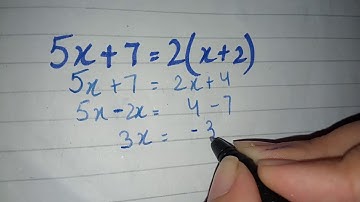 5x+7=2(x+2)
5x+7 = 2x+4
5x-2x= 4-7
3x = -3